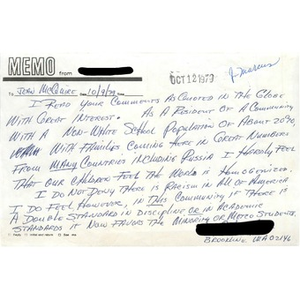 MEMO from
To Jean McGuire 10/9/79
OCT 12 1979
I Read your Comments as Quoted in the Globe
With Great Interest. As a Resident of a Community
With a Non-White School Population of About 20%
With Families Coming Here in Great Numbers
From Many Countries Including Russia I Hardly Feel
That our Children Feel the World is Homogenized.
I Do Not Deny There is Racism in All of America
I Do Feel, However, in This Community if There is
A Double Standard in Discipline or in Academic
Standards it Now Favors the Minority or Metco Students.
Brookline, MA 02146